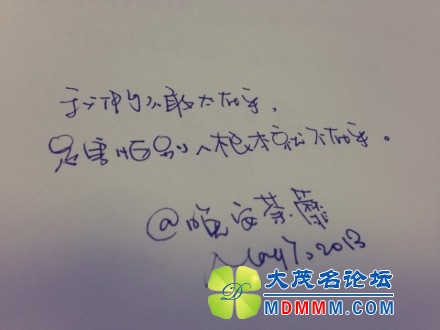 不敢太在乎，
害怕别人根本就不在乎。
@晚安荼蘼
May 7, 2013
大茂名论坛
MDMMM.COM